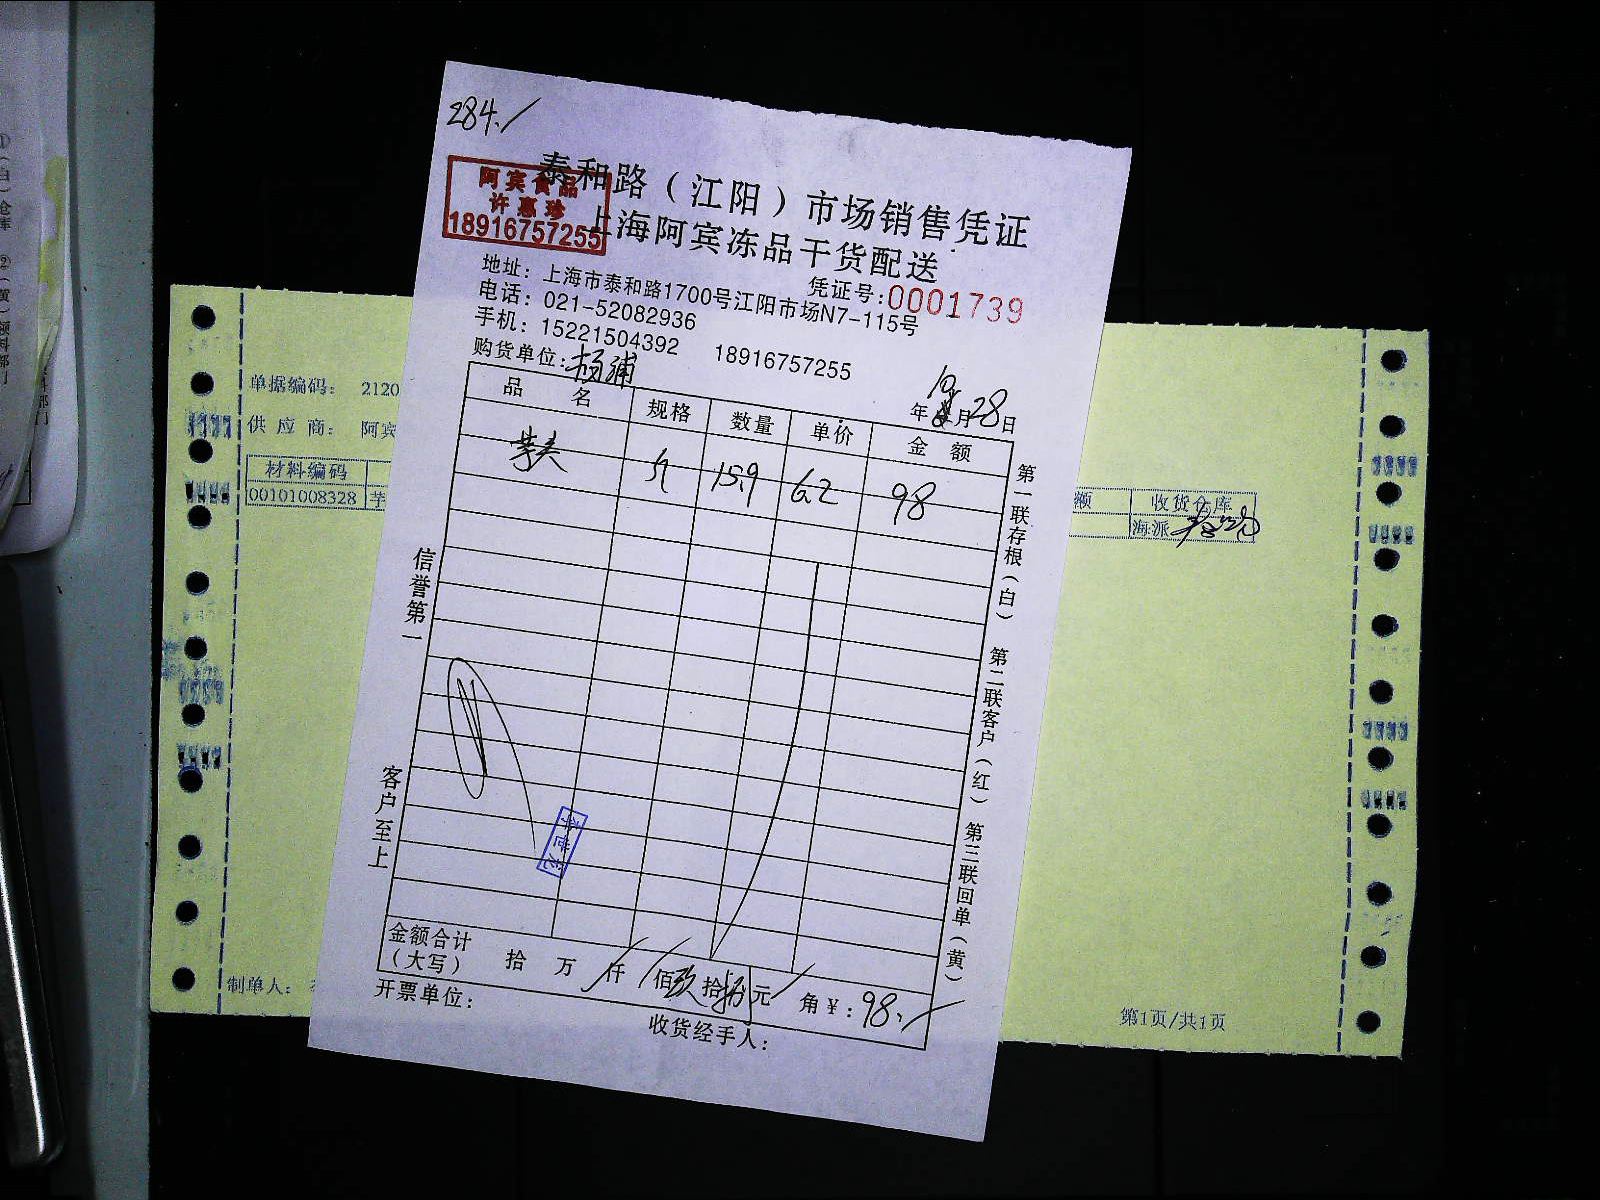 284./
泰和路（江阳）市场销售凭证
上海阿宾冻品干货配送
阿宾食品
许惠珍
18916757255
凭证号:0001739
地址：上海市泰和路1700号江阳市场N7-115号
电话：021-52082936
手机：15221504392 18916757255
购货单位:杨浦
年10月28日
品名 规格 数量 单价 金额
斤 15.9 6.2 98
信誉第一
客户至上
第一联存根（白） 第二联客户（红） 第三联回单（黄）
金额合计
（大写） 拾 万 仟 佰玖拾捌元 角￥:98./
开票单位:
收货经手人:
单据编码： 2120
供应商： 阿宾
材料编码
00101008328 芋
额 收货仓库
海派
制单人：
第1页/共1页